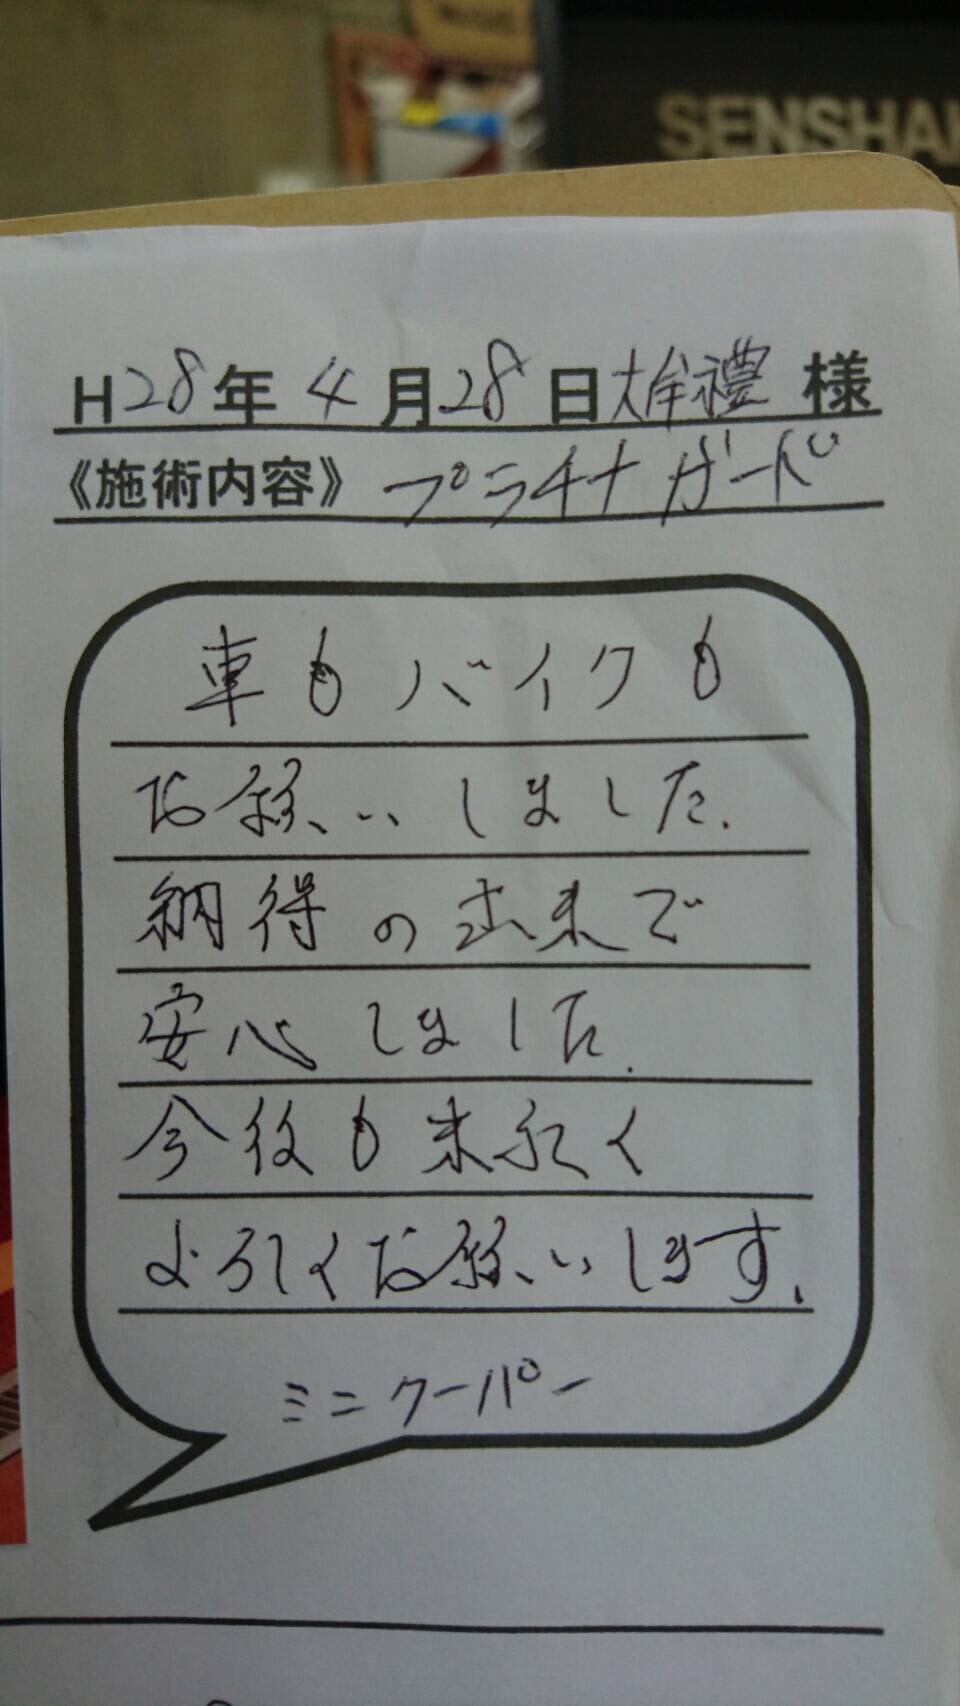 SENSHA
H28年 4月28日大牟禮 様
《施術内容》 プラチナガード
車もバイクも
お願いしました.
納得の出来で
安心しました.
今後も末永く
よろしくお願いします.
ミニクーパー